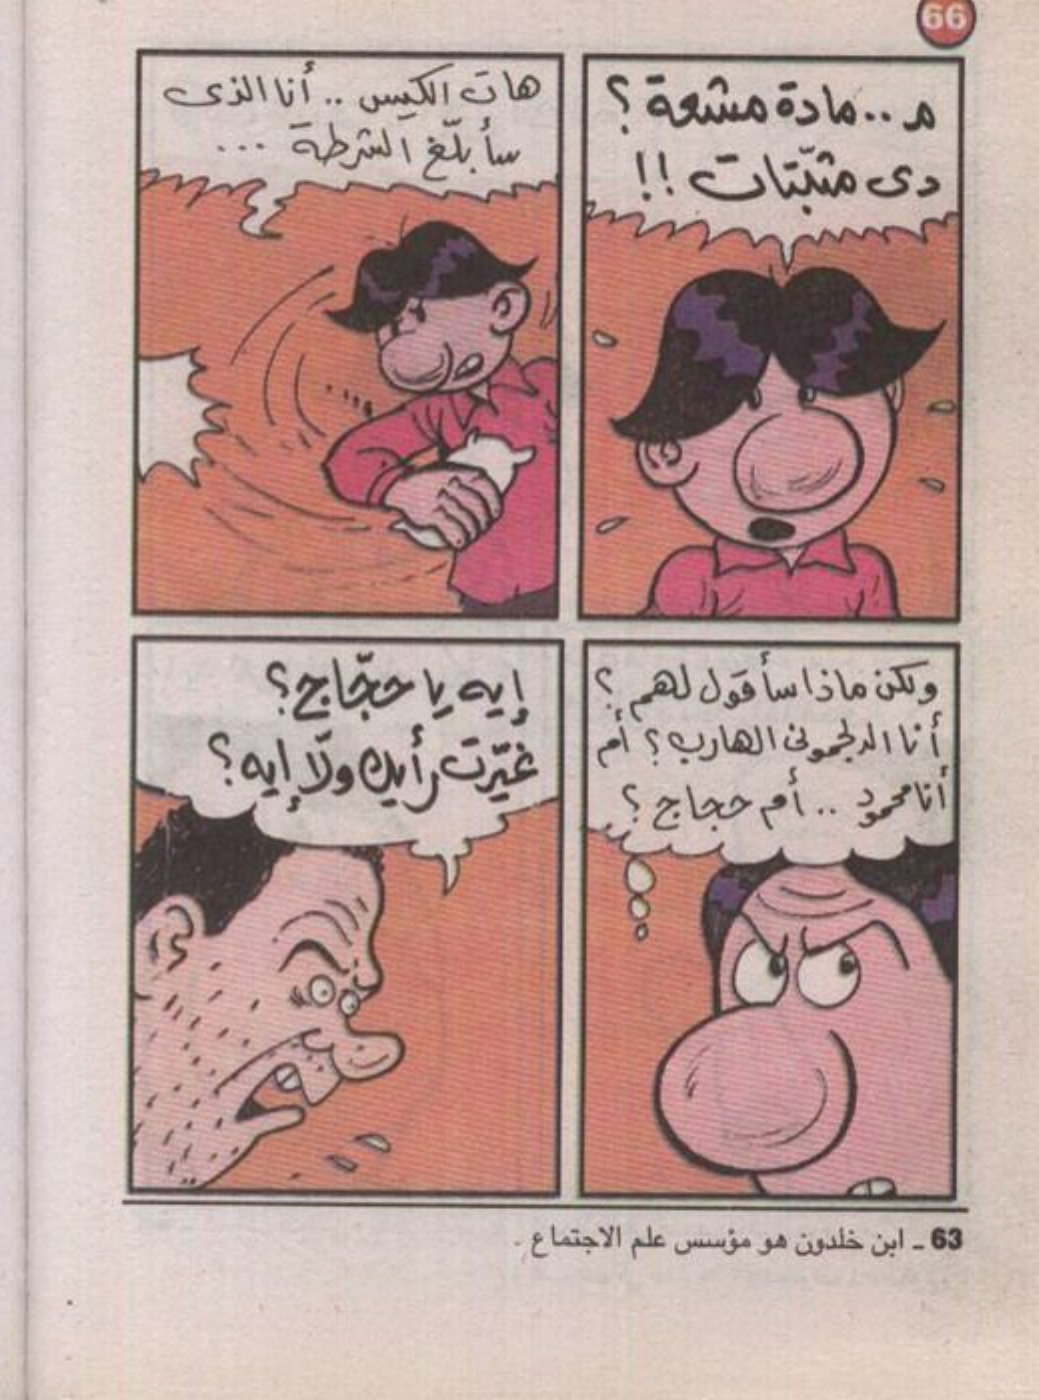 66
م...مادة مشعة ؟
دى مثبّتات !!
هات الكيس .. أنا الذى
سأبلّغ الشرطة ...
ولكن ماذا سأقول لهم ؟
أنا الدلجمونى الهارب ؟ أم
أنا محمود .. أم حجاج ؟
إيه يا حجّاج ؟
غيّرت رأيك ولّا إيه ؟
63 ـ ابن خلدون هو مؤسس علم الاجتماع .